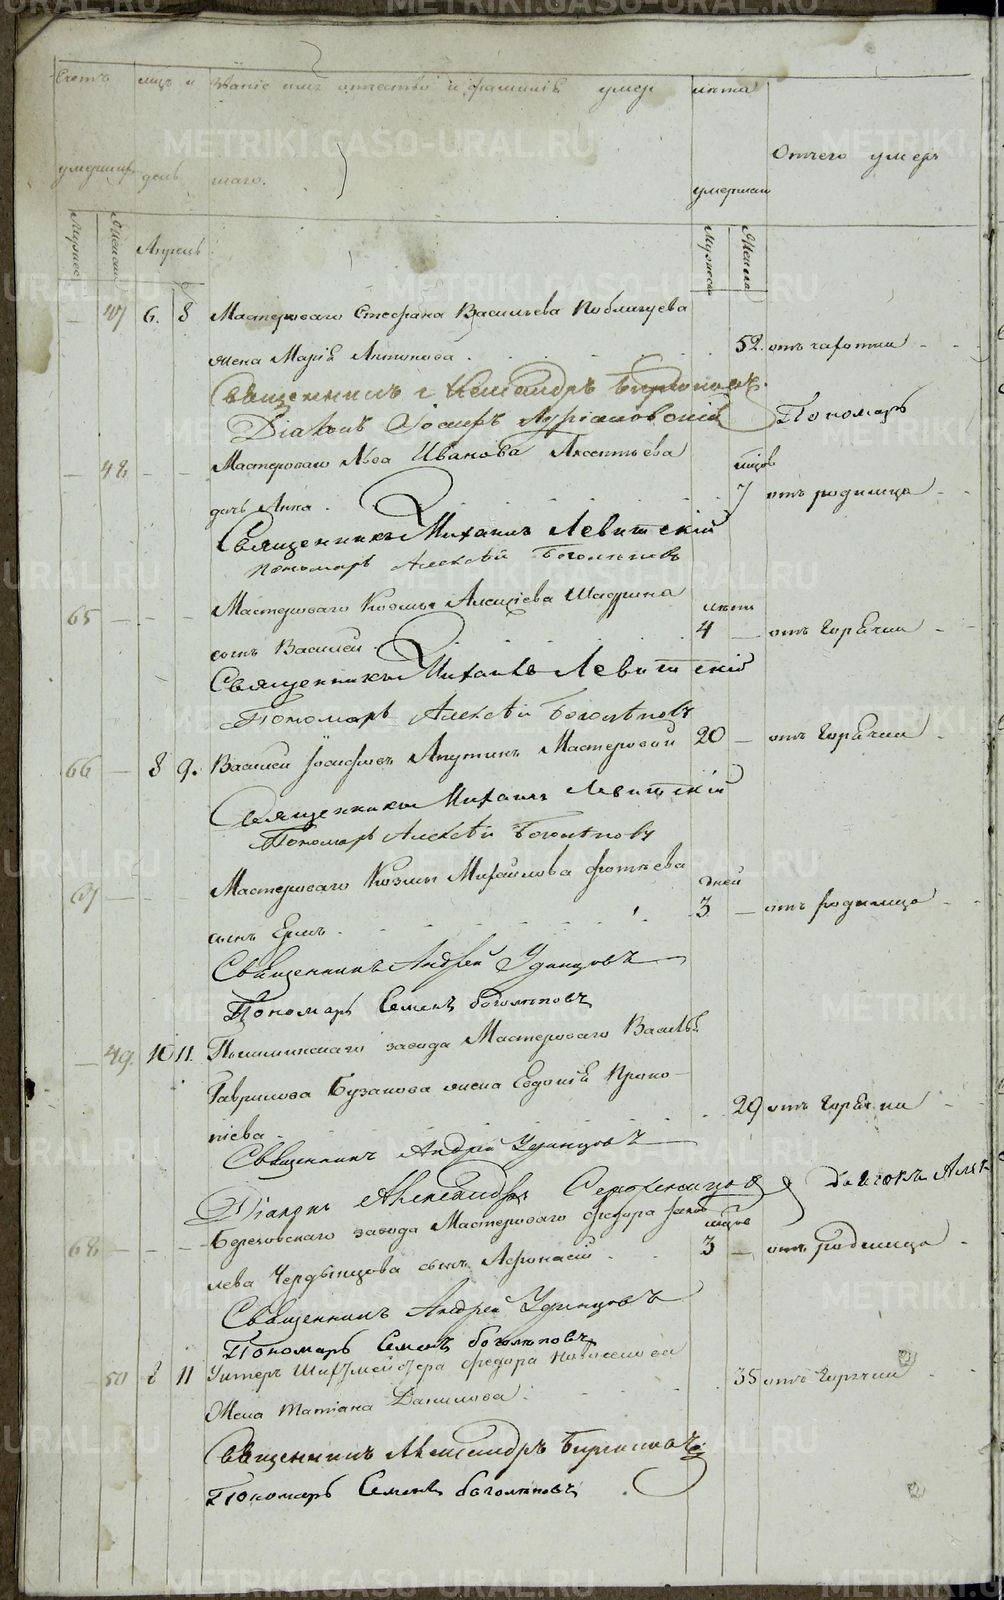 Счетъ мцъ и званіе имя отчество и фамилія умер лѣта
умерших день шаго. умершаго Отчего умеръ
Мужес Женска Апрель Мужеска Женска
47 6. 8 Мастероваго Стефана Васильева
жена Марія Антонова 52. отъ чахотки
Священникъ Александръ
Діаконъ Іосифъ Пономарь
48 Мастероваго Льва Иванова Аксентьева мцов
дочь Анна. 7 отъ родимца
Священникъ Михаилъ Левитскій
Пономарь Алексѣй Боголѣповъ
65 Мастероваго Козмы Алексіева Шадрина лѣтъ
сынъ Василей 4 отъ горячки
Священникъ Михаилъ Левитскій
Пономарь Алексѣй Боголѣповъ
66 8 9. Василей Іосифовъ Мастеровой 20 отъ горячки
Священникъ Михаилъ Левитскій
Пономарь Алексѣй Боголѣповъ
67 Мастероваго Козмы Михайлова Фотѣева дней
сынъ 3 отъ родимца
Священникъ Андрей Удинцовъ
Пономарь Семенъ Боголѣповъ
49. 10 11. Пышминскаго завода Мастероваго
Гаврилова Бузанова жена Евдокія Проко-
піева 29 отъ горячки
Священникъ Андрей Удинцовъ
Діаконъ Александръ
68 Березовскаго завода Мастероваго Федора Яков мцов
лева Чердынцова сынъ Афонасій 3 отъ родимца
Священникъ Андрей Удинцовъ
Пономарь Семенъ Боголѣповъ
50 8 11 Унтеръ Шихтмейстера Федора
Жена Татіана Данилова 35 отъ горячки
Священникъ Александръ
Пономарь Семенъ Боголѣповъ
METRIKI.GASO-URAL.RU